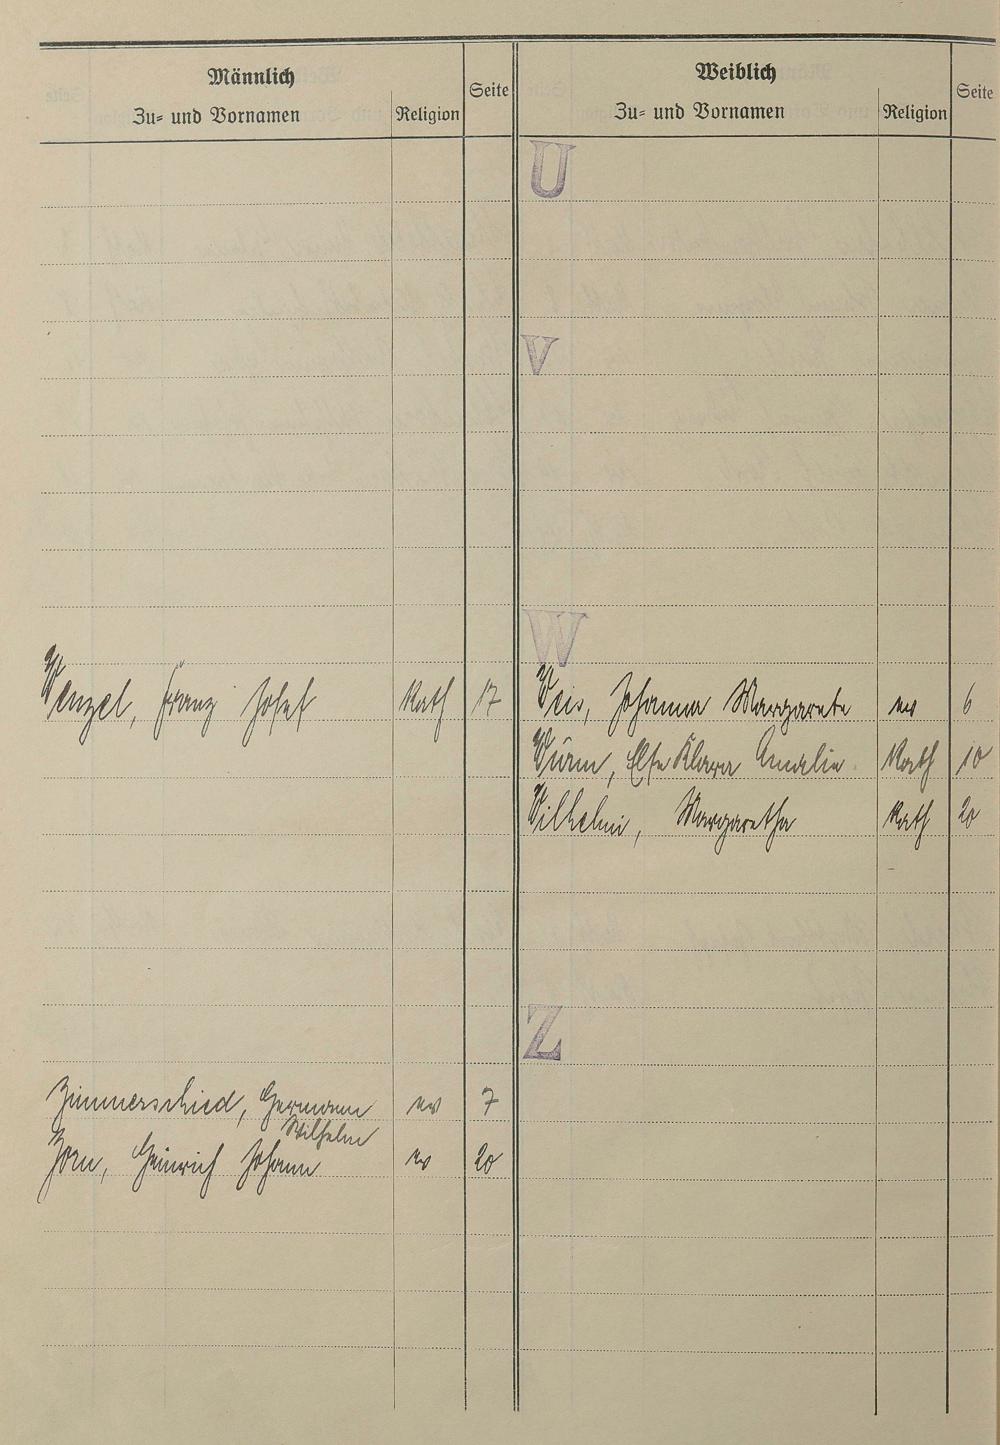 Männlich
Zu- und Vornamen
Religion
Seite
Weiblich
Zu- und Vornamen
Religion
Seite
U
V
W
Wenzel, Franz Josef Kath 17
Weis, Johanna Margarete ev 6
Wurm, Else Klara Amalie Kath 10
Wilhelmi, Margaretha Kath 20
Z
Zimmerschied, Hermann ev 7
Wilhelm
Zorn, Heinrich Johann ev 20